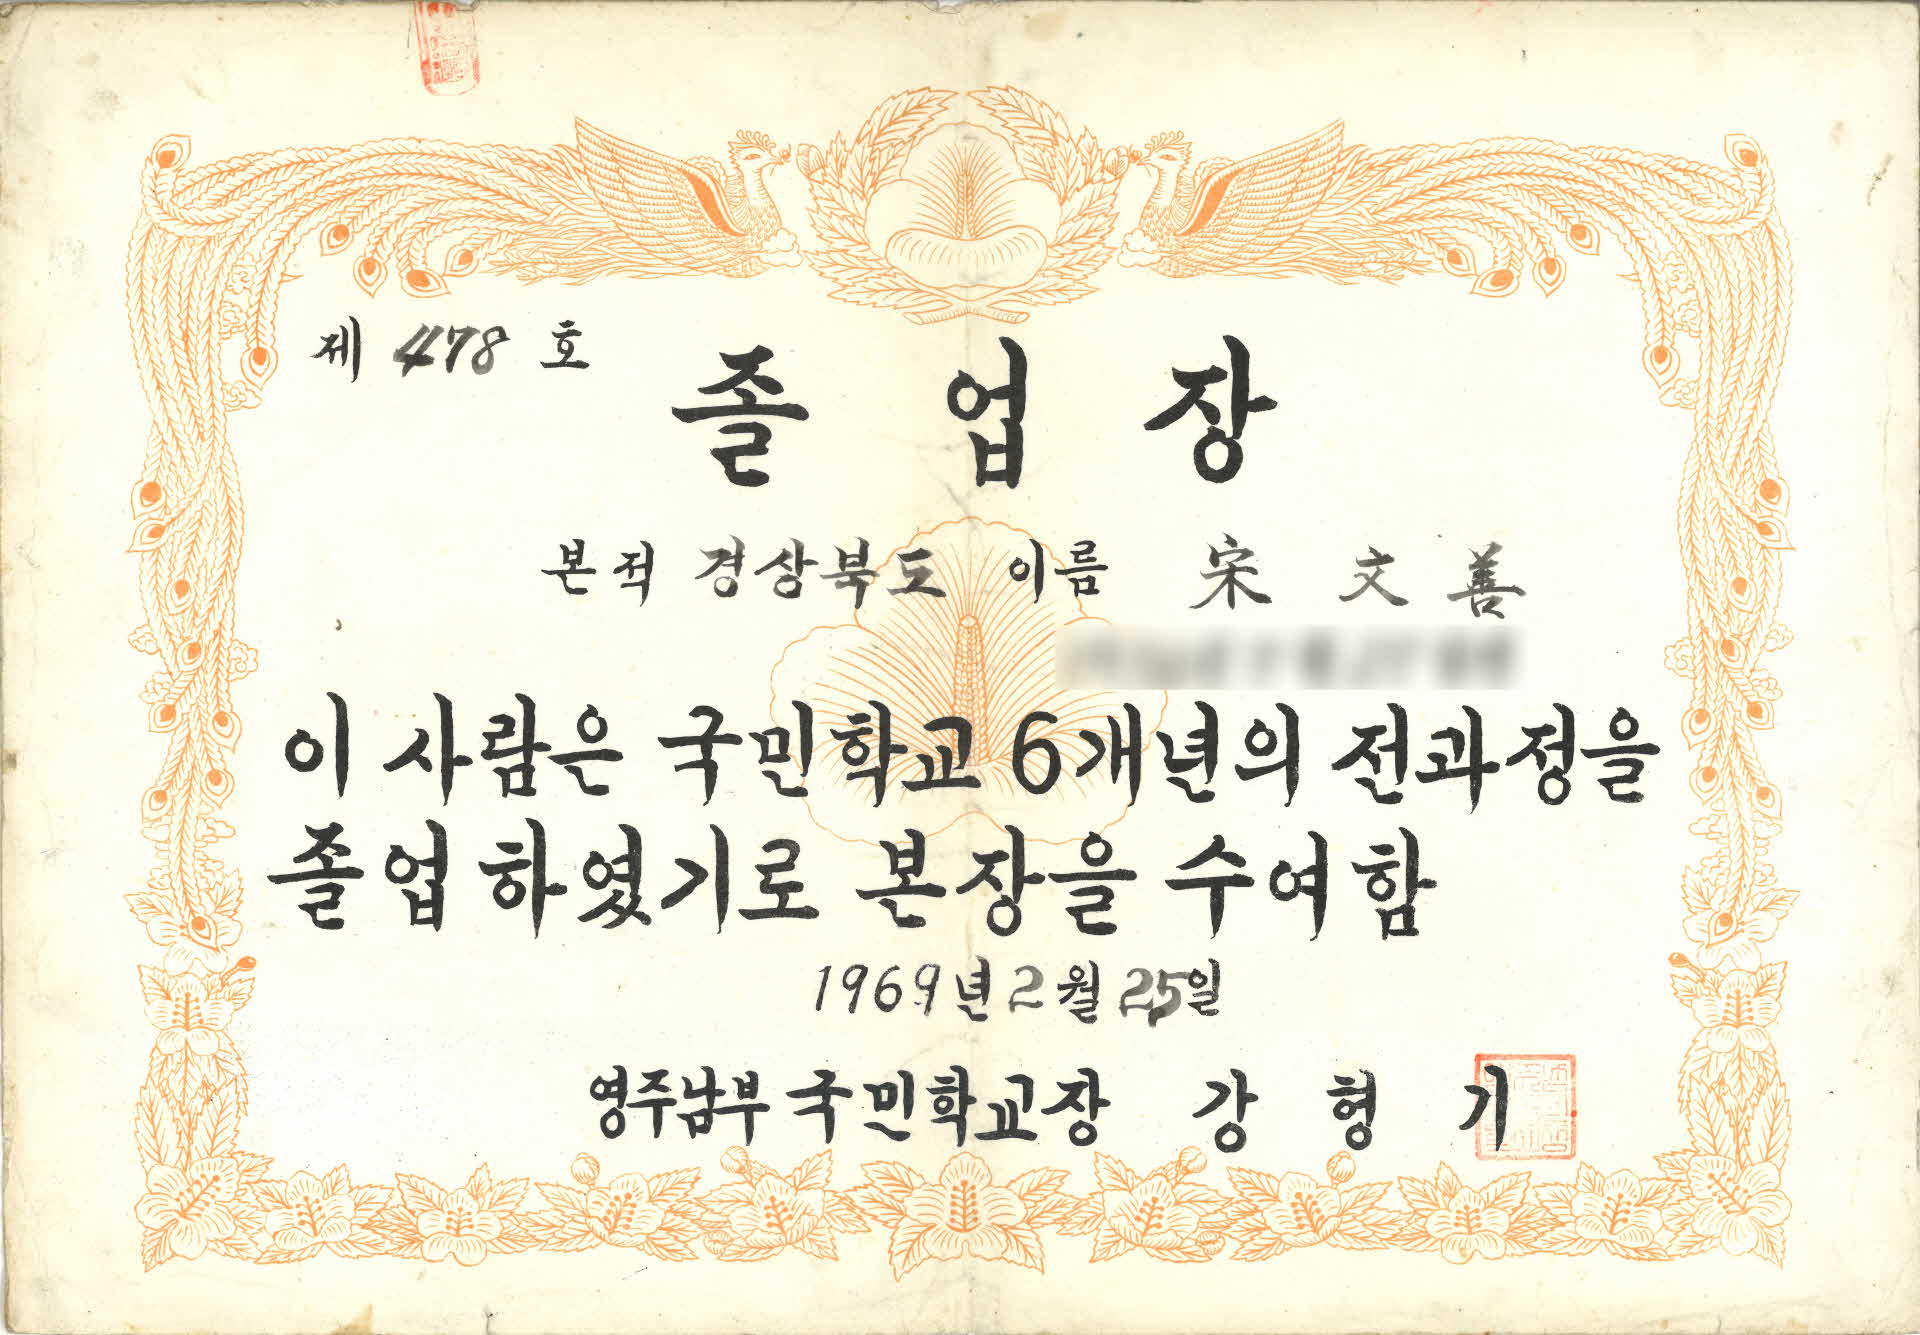 제 478 호
졸 업 장
본적 경상북도 이름 宋 文 善
이 사람은 국민학교 6개년의 전과정을
졸업하였기로 본장을 수여함
1969년 2월 25일
영주남부국민학교장 강 형 기